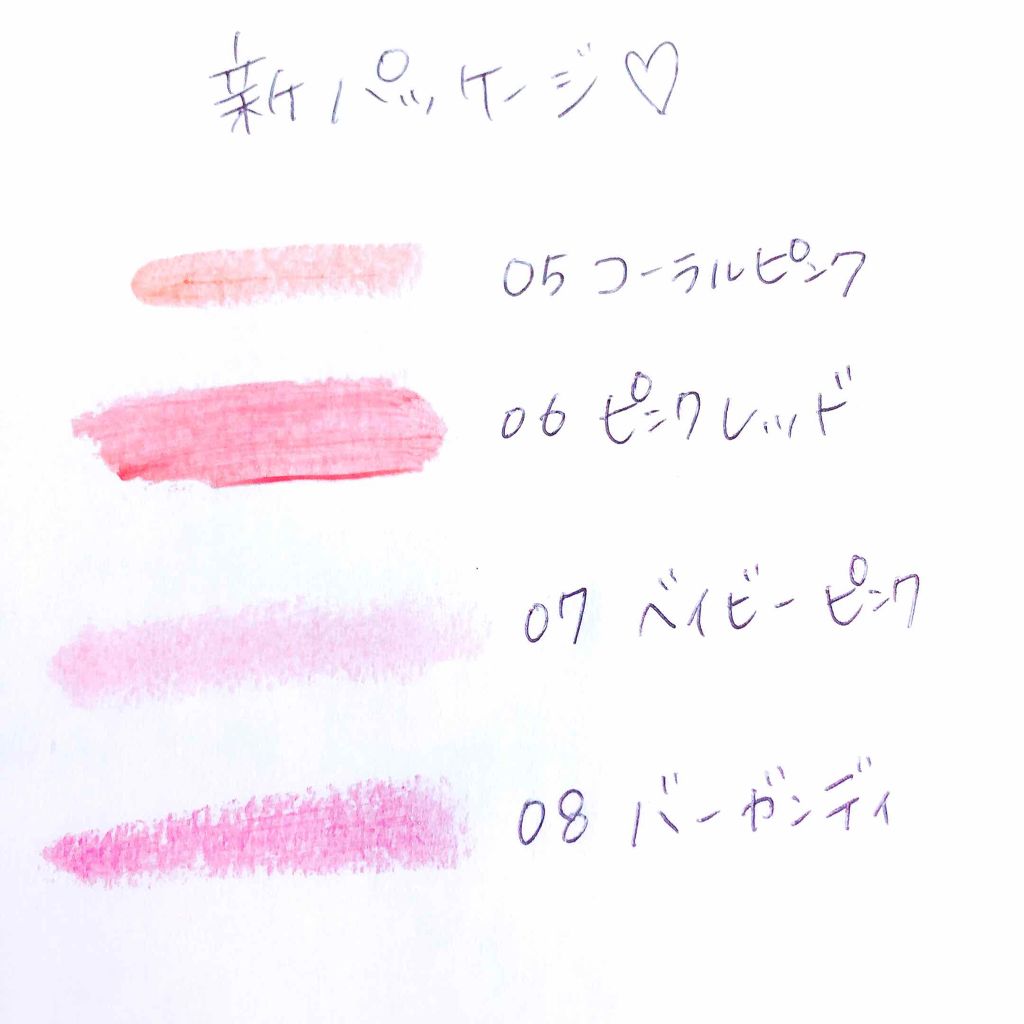 新パッケージ♡
05 コーラルピンク
06 ピンクレッド
07 ベイビーピンク
08 バーガンディ